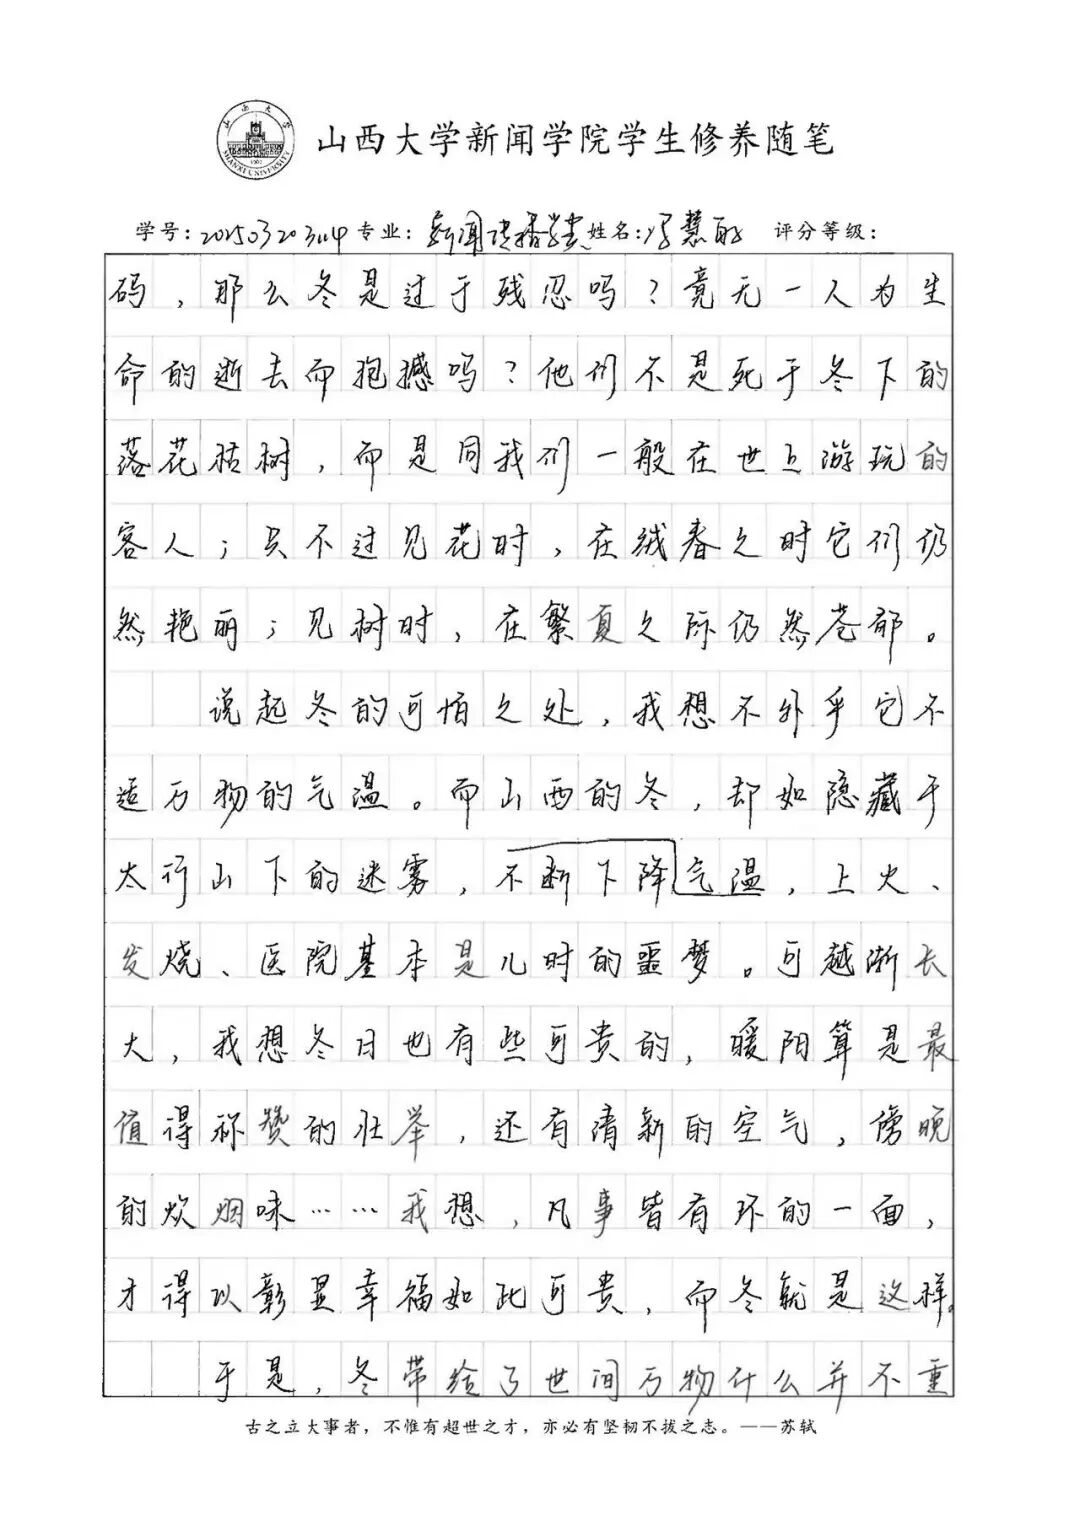 山西大学
SHANXI UNIVERSITY
1902
山西大学新闻学院学生修养随笔
学号: 专业: 新闻传播学类 姓名: 冯慧 评分等级:
码，那么冬是过于残忍吗？竟无一人为生
命的逝去而抱撼吗？他们不是死于冬下的
落花枯树，而是同我们一般在世上游玩的
客人；只不过见花时，在绒春之时它们仍
然艳丽；见树时，在繁夏之际仍然苍郁。
说起冬的可怕之处，我想不外乎它不
适万物的气温。而山西的冬，却如隐藏于
太行山下的迷雾，不断下降气温，上火、
发烧、医院基本是儿时的噩梦。可越渐长
大，我想冬日也有些可贵的，暖阳算是最
值得称赞的壮举，还有清新的空气，傍晚
的炊烟味……我想，凡事皆有坏的一面，
才得以彰显幸福如此可贵，而冬就是这样。
于是，冬带给了世间万物什么并不重
古之立大事者，不惟有超世之才，亦必有坚韧不拔之志。——苏轼